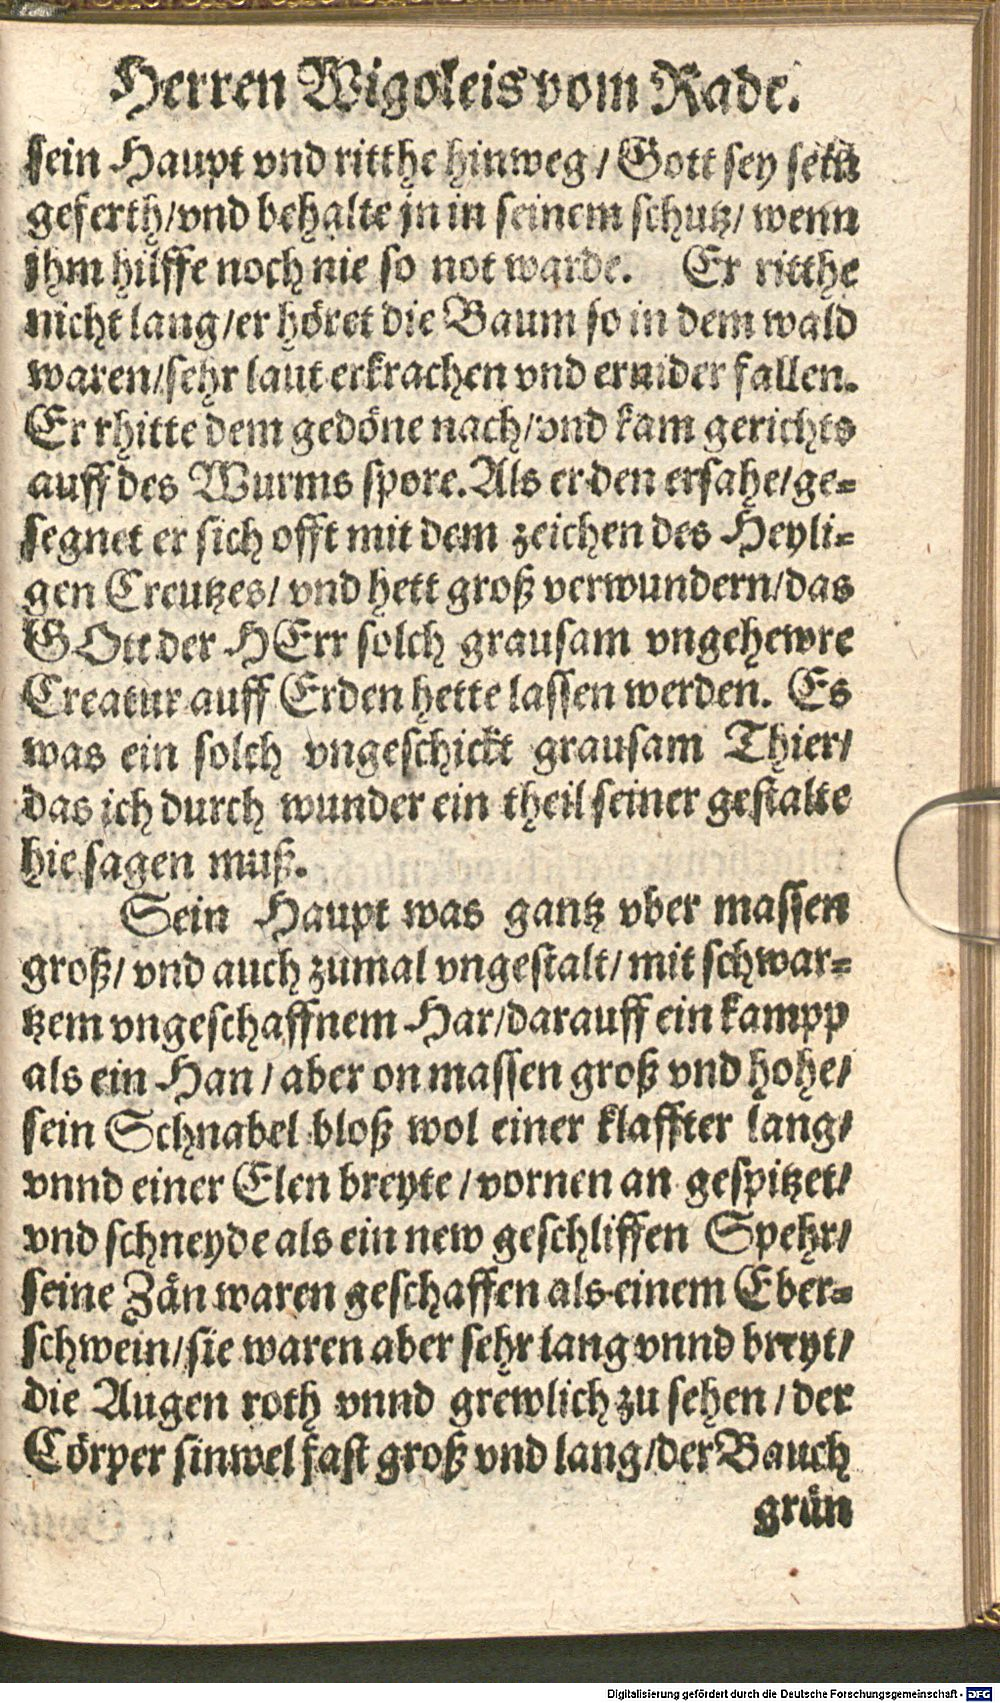 Herren Wigoleis vom Rade.
sein Haupt vnd ritthe hinweg / Gott sey sein
geferth/vnd behalte jn in seinem schutz/ wenn
jhm hilffe noch nie so not warde. Er ritthe
nicht lang/er höret die Baum so in dem wald
waren/sehr laut erkrachen vnd ernider fallen.
Er rhitte dem gedöne nach/vnd kam gerichts
auff des Wurms spore. Als er den ersahe/ge-
segnet er sich offt mit dem zeichen des Heyli-
gen Creutzes/ vnd hett groß verwundern/das
GOtt der HErr solch grausam vngehewre
Creatur auff Erden hette lassen werden. Es
was ein solch vngeschickt grausam Thier/
das ich durch wunder ein theil seiner gestalte
hie sagen muß.
Sein Haupt was gantz vber massen
groß/ vnd auch zumal vngestalt/ mit schwar-
tzem vngeschaffnem Har/darauff ein kampp
als ein Han / aber on massen groß vnd hohe/
sein Schnabel bloß wol einer klaffter lang/
vnnd einer Elen breyte / vornen an gespitzet/
vnd schneyde als ein new geschliffen Spehr/
seine Zän waren geschaffen als einem Eber-
schwein/sie waren aber sehr lang vnnd breyt/
die Augen roth vnnd grewlich zu sehen / der
Cörper sinwel fast groß vnd lang/der Bauch
grün
Digitalisierung gefördert durch die Deutsche Forschungsgemeinschaft - DFG